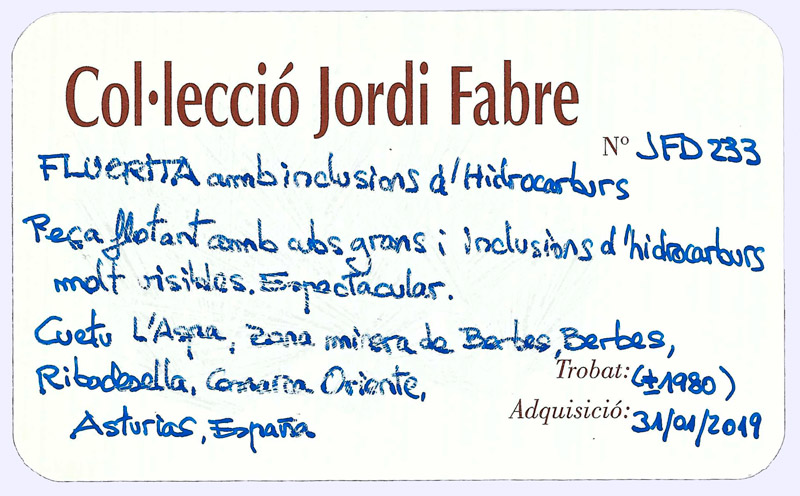 Col·lecció Jordi Fabre
Nº JFD 233
FLUORITA amb inclusions d'Hidrocarburs
Peça flotant amb cubs grans i inclusions d'hidrocarburs
molt visibles. Espectacular.
Cuetu L'Aspa, zona minera de Berbes, Berbes,
Ribadesella, Comarca Oriente,
Trobat: (±1980)
Asturias, España
Adquisició: 31/01/2019